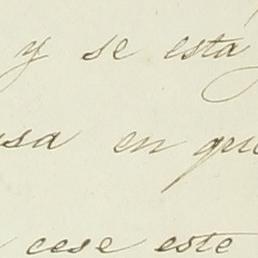 y se está
usa en que
cese este